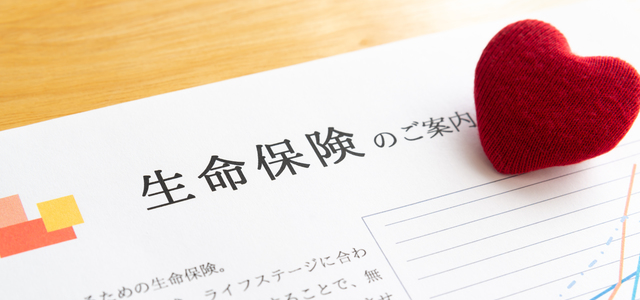 生命保険のご案内
るための生命保険。
ライフステージに合わ
ることで、無